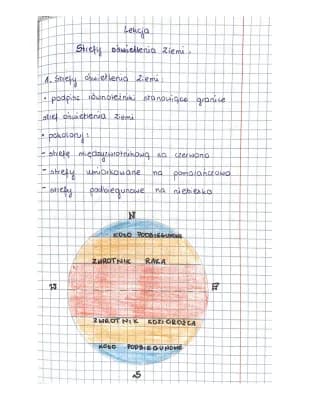 Lekcja
Strefy oświetlenia Ziemi.
1. Strefy oświetlenia Ziemi:
• podpisz równoleżniki stanowiące granice
stref oświetlenia Ziemi
• pokoloruj:
- strefę międzyzwrotnikową na czerwono
- strefy umiarkowane na pomarańczowo
- strefy podbiegunowe na niebiesko
N
KOŁO PODBIEGUNOWE
ZWROTNIK RAKA
ZWROTNIK KOZIOROŻCA
KOŁO PODBIEGUNOWE
S